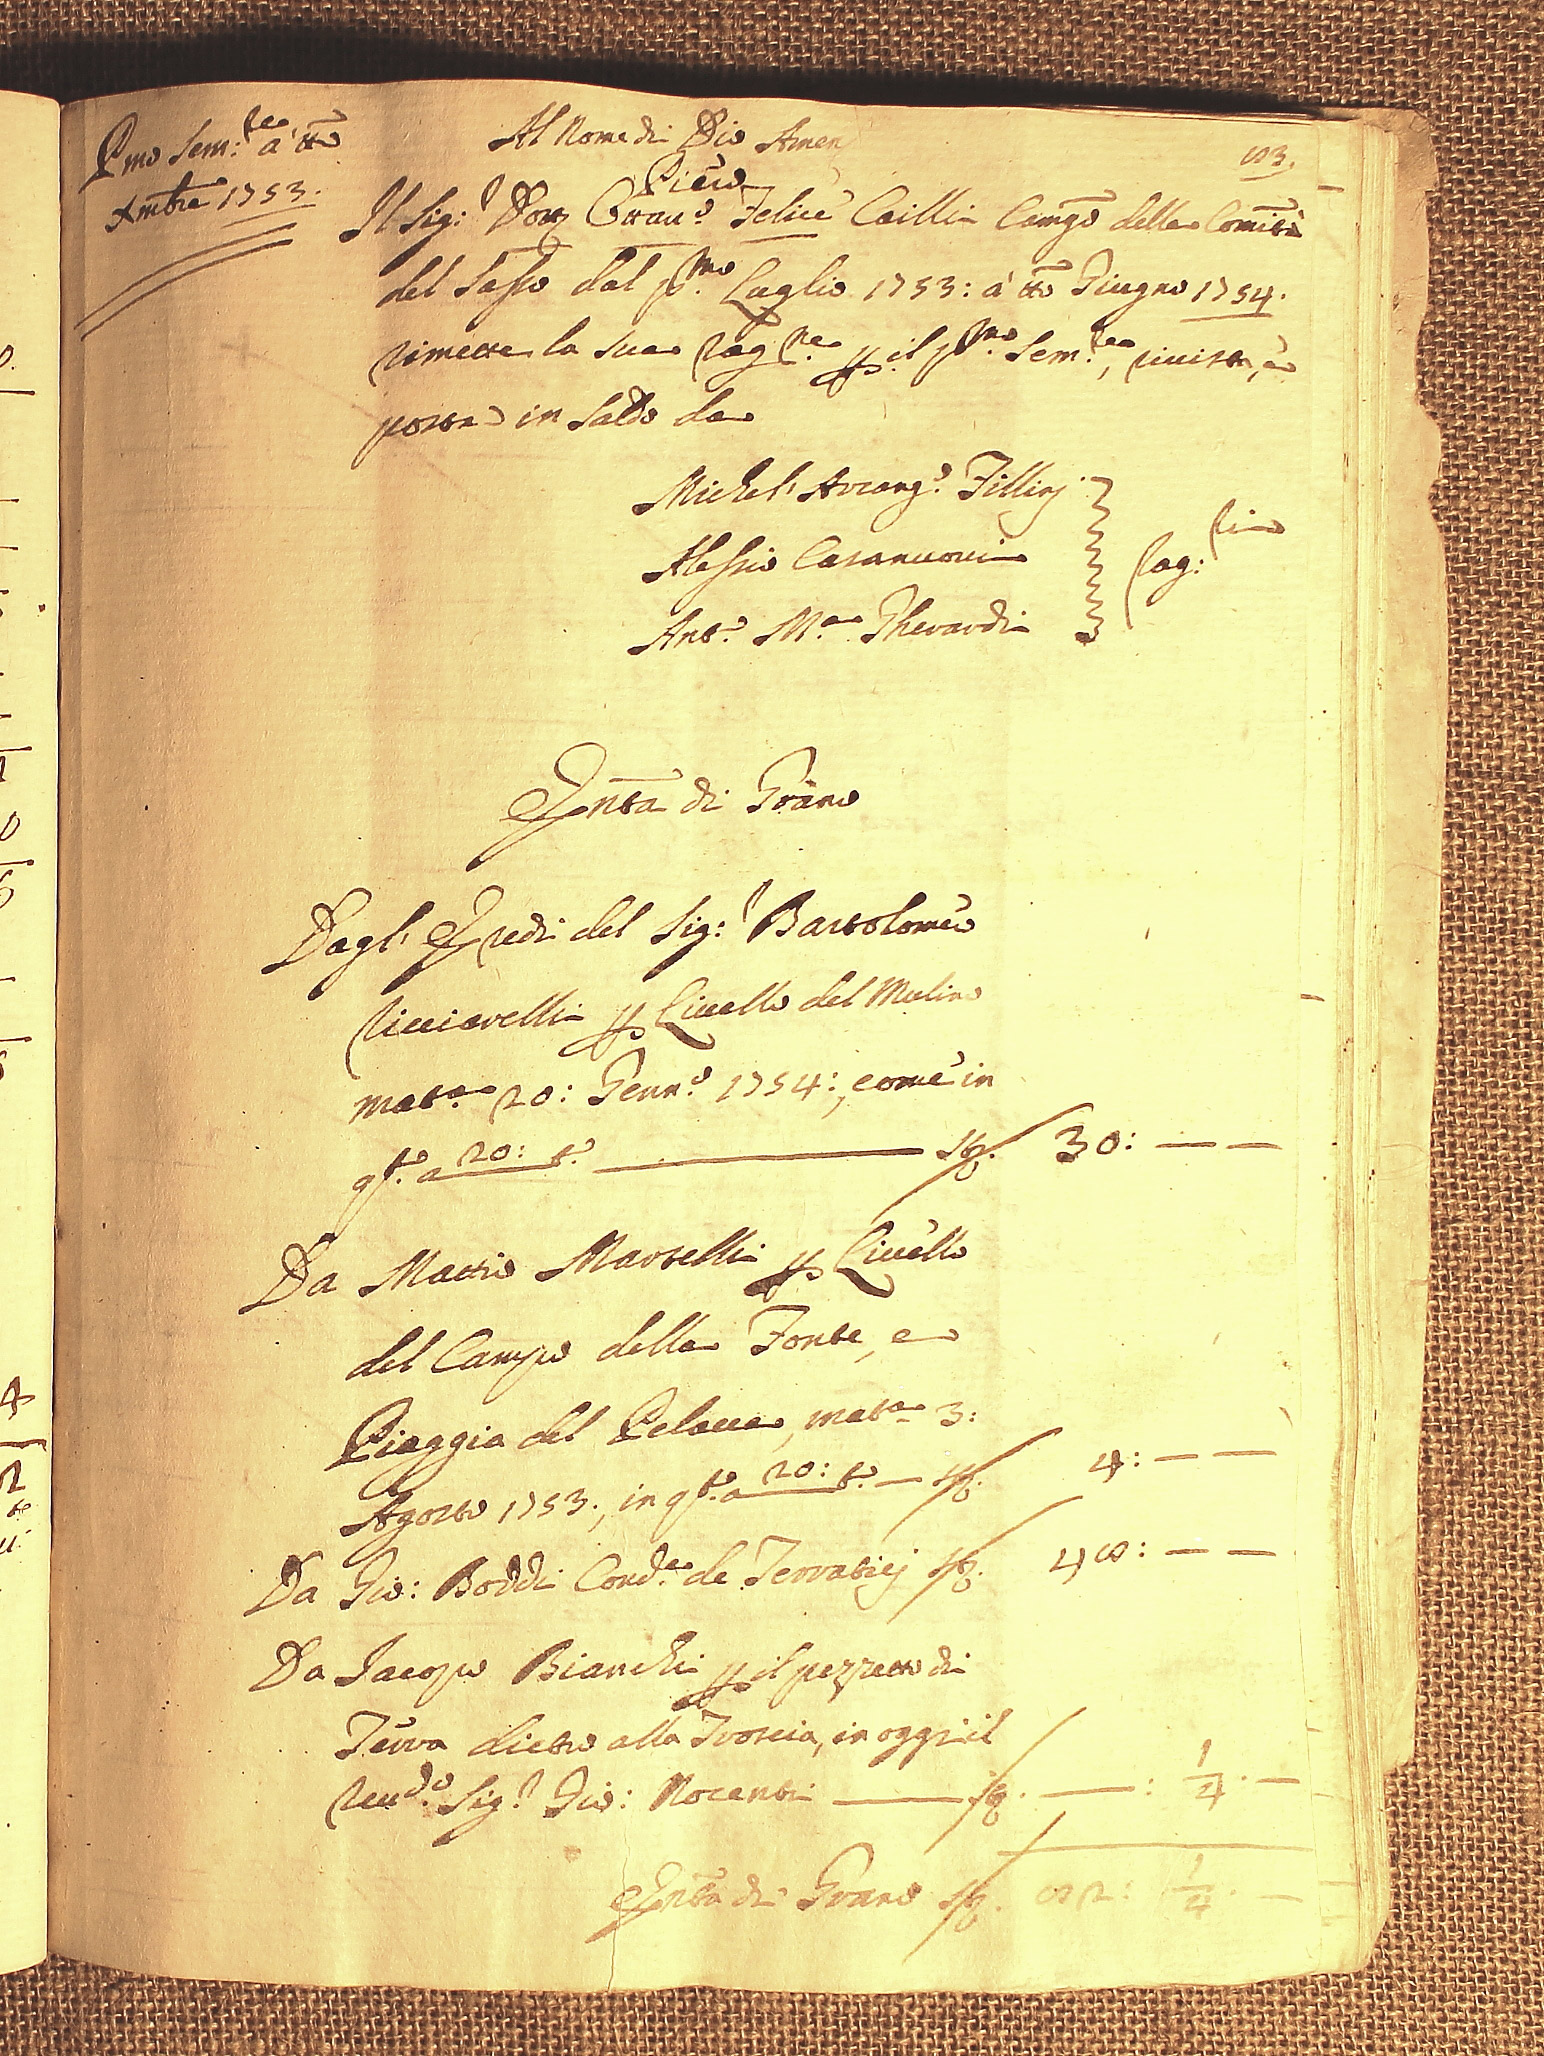 Pmo Sem:re à tto
Xmbre 1753.
Al Nome di Dio Amen
53.
Piero
Il Sig:r Dott Ottau:o Felice Cailli Camgo della Comità
del Sasso dal p:mo Luglio 1753: à tto Giugno 1754.
rimette la sua rag:ne p il p:mo Sem:re, riuista, e
posta in Saldo da
Michel' Arcang:o Fillinj
Alessio Casanuoui
Ant:o M:a Gherardi
Rag:rii
Entta di Grano
Dagl' Eredi del Sig:r Bartolomeo
Ricciarelli p Liuello del Mulino
mat:a 20: Genn:o 1754:, come in
q:to a 20: t:o Stg. 30: — —
Da Mattio Martelli p Liuello
del Campo della Fonte, e
Piaggia del Pelacca, mat:a 3:
Agosto 1753:, in q:to a 20: t:o — Stg. 4: — —
Da Gio: Boddi Cond:re de Terraticj Stg. 48: — —
Da Iacopo Bianchi p il pezzetto di
Terra dietro alla Troscia, in oggi il
Reu:do Sig:r Gio: Nocenti — Stg. — : 1/4. —
Entta di Grano Stg. 82: 1/4. —